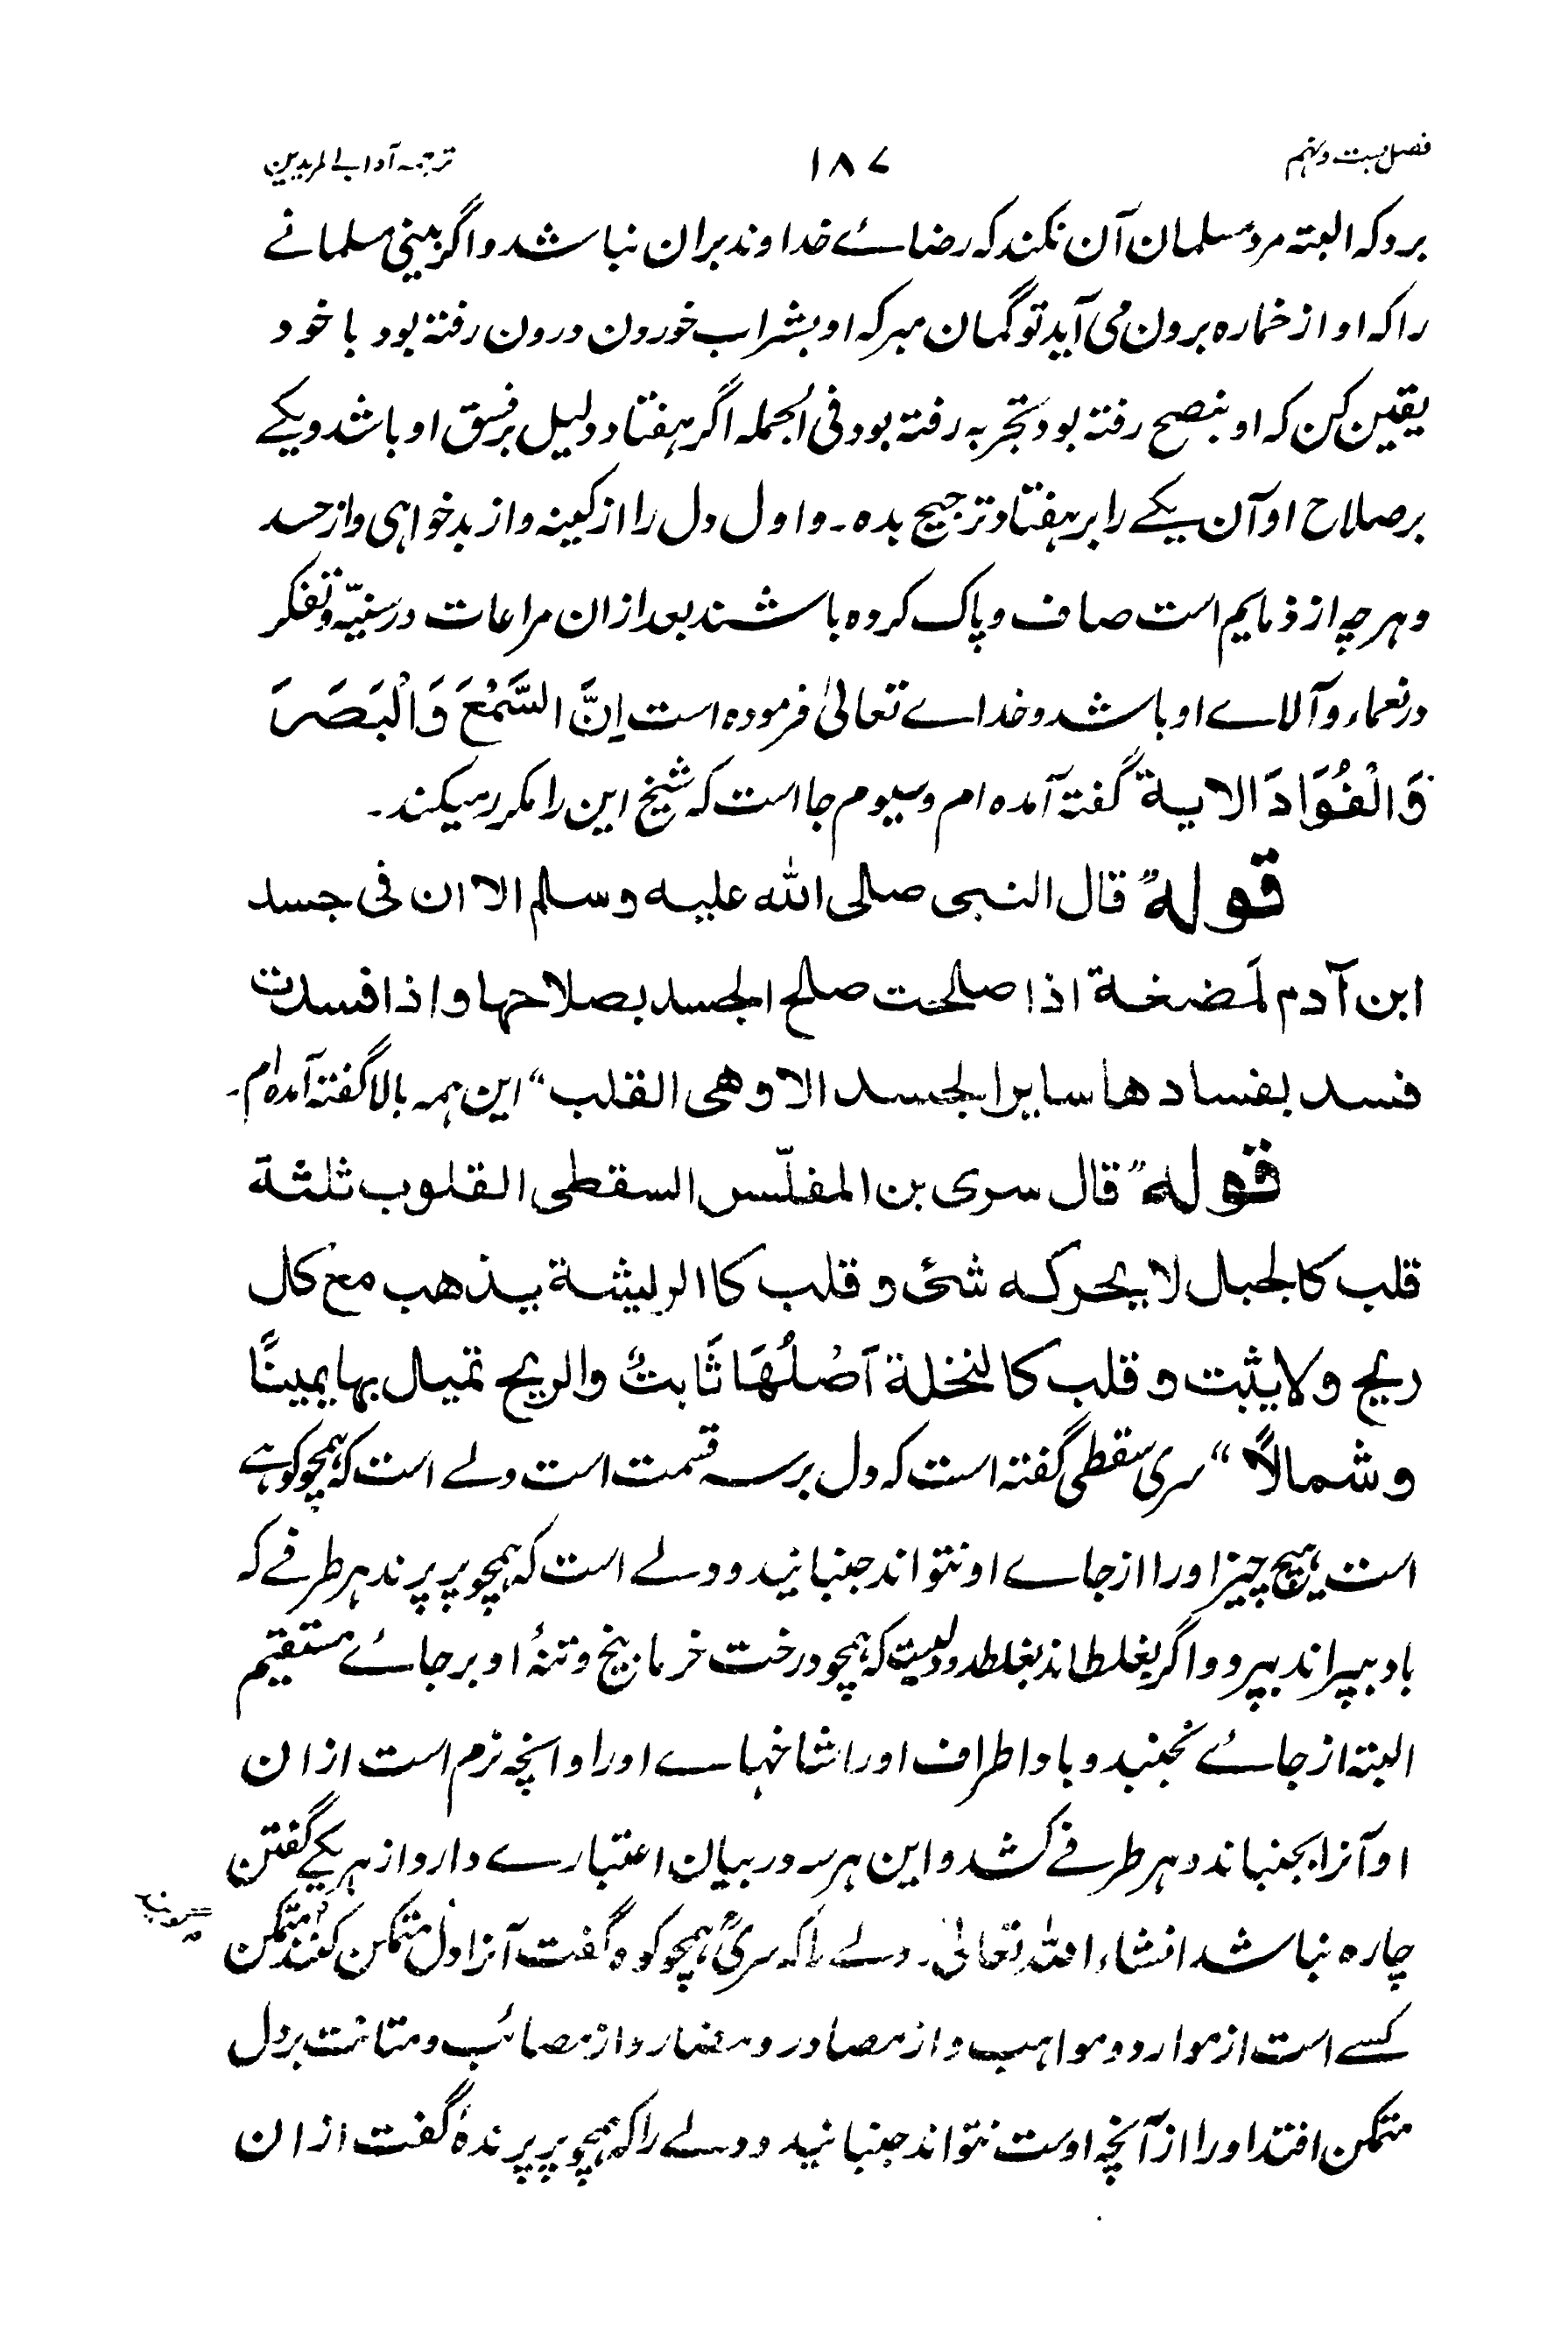 فصل بست ونهم ۱۸۷ ترجمہ آداب المریدین
برد که البته مرد مسلمان آن نکند که رضاے خداوند بران نباشد و اگر بینی مسلمانے
را که او از خماره برون می آید تو گمان مبر که او بشراب خوردن درون رفته بود با خود
یقین کن که او بنصح رفته بود بتجربه رفته بود فی الجمله اگر هفتاد دلیل بر فسق او باشد و یکے
بر صلاح او آن یکے را بر هفتاد ترجیح بده۔ و اول دل را از کینه و از بدخواهی و از حسد
و هر چه از ذمایم است صاف و پاک کرده باشند بعد ازان مراعات در سنیّه و تفکر
در نعماء و آلاے او باشد و خداے تعالیٰ فرموده است اِنَّ السَّمْعَ وَالْبَصَرَ
وَالْفُوَادَ الایة گفته آمده ام و سیوم جا است که شیخ این را مکرر میکند۔
قوله "قال النبی صلی الله علیه وسلم الا ان فی جسد
ابن آدم لَمضغة اذا صلحت صلح الجسد بصلاحها و اذا فسدت
فسد بفسادها سایر الجسد الا وهی القلب" این همه بالا گفته آمده ام۔
قوله "قال سری بن المفلّس السقطی القلوب ثلثة
قلب کالجبال لا یحرکه شئ و قلب کاالریشة یذهب مع کل
ریح ولا یثبت و قلب کالنخلة اَصْلُهَا ثَابتٌ والریح تمیل بها یمینًا
وشمالاً" سری سقطی گفته است که دل بر سه قسمت است دلے است که همچو کوهے
است هیچ چیز او را از جاے او نتواند جنبانید و دلے است که همچو پر پرند هر طرفے که
باد بپراند بپرد و اگر بغلطاند بغلطد و دلیست که همچو درخت خرما بیخ و تنهٔ او بر جاے مستقیم
البته از جاے نجنبد و باد اطراف او را شاخهاے او را و آنچه نرم است ازان
او آنرا بجنباند و هر طرفے کشد و این هر سه در بیان اعتبارے دارد از هر یکے گفتن
چاره نباشد انشاء الله تعالیٰ۔ دلے را که سریؒ همچو کوه گفت آنرا دل متمکن گفتند متمکن
کسے است از موارد و مواهب و از مصادر و مضار و از مصائب و متانت بر دل
متمکن افتد او را از آنچه اوست نتواند جنبانید و دلے را که همچو پر پرنده گفت ازان